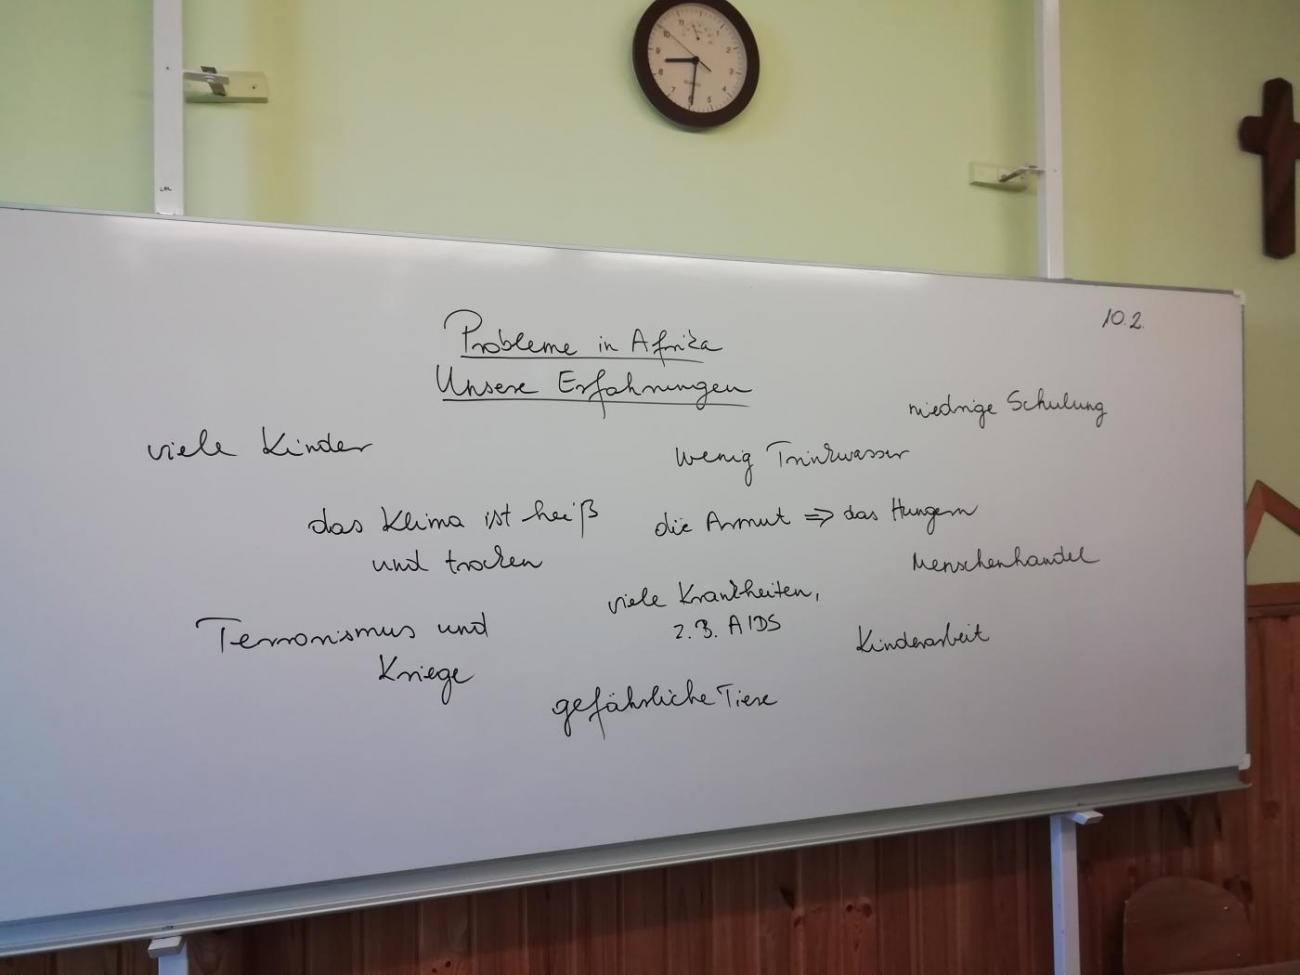 10.2.
Probleme in Afrika
Unsere Erfahrungen
niedrige Schulung
viele Kinder
wenig Trinkwasser
das Klima ist heiß
und trocken
die Armut ⇒ das Hungern
Menschenhandel
viele Krankheiten,
z.B. AIDS
Terrorismus und
Kriege
Kinderarbeit
gefährliche Tiere